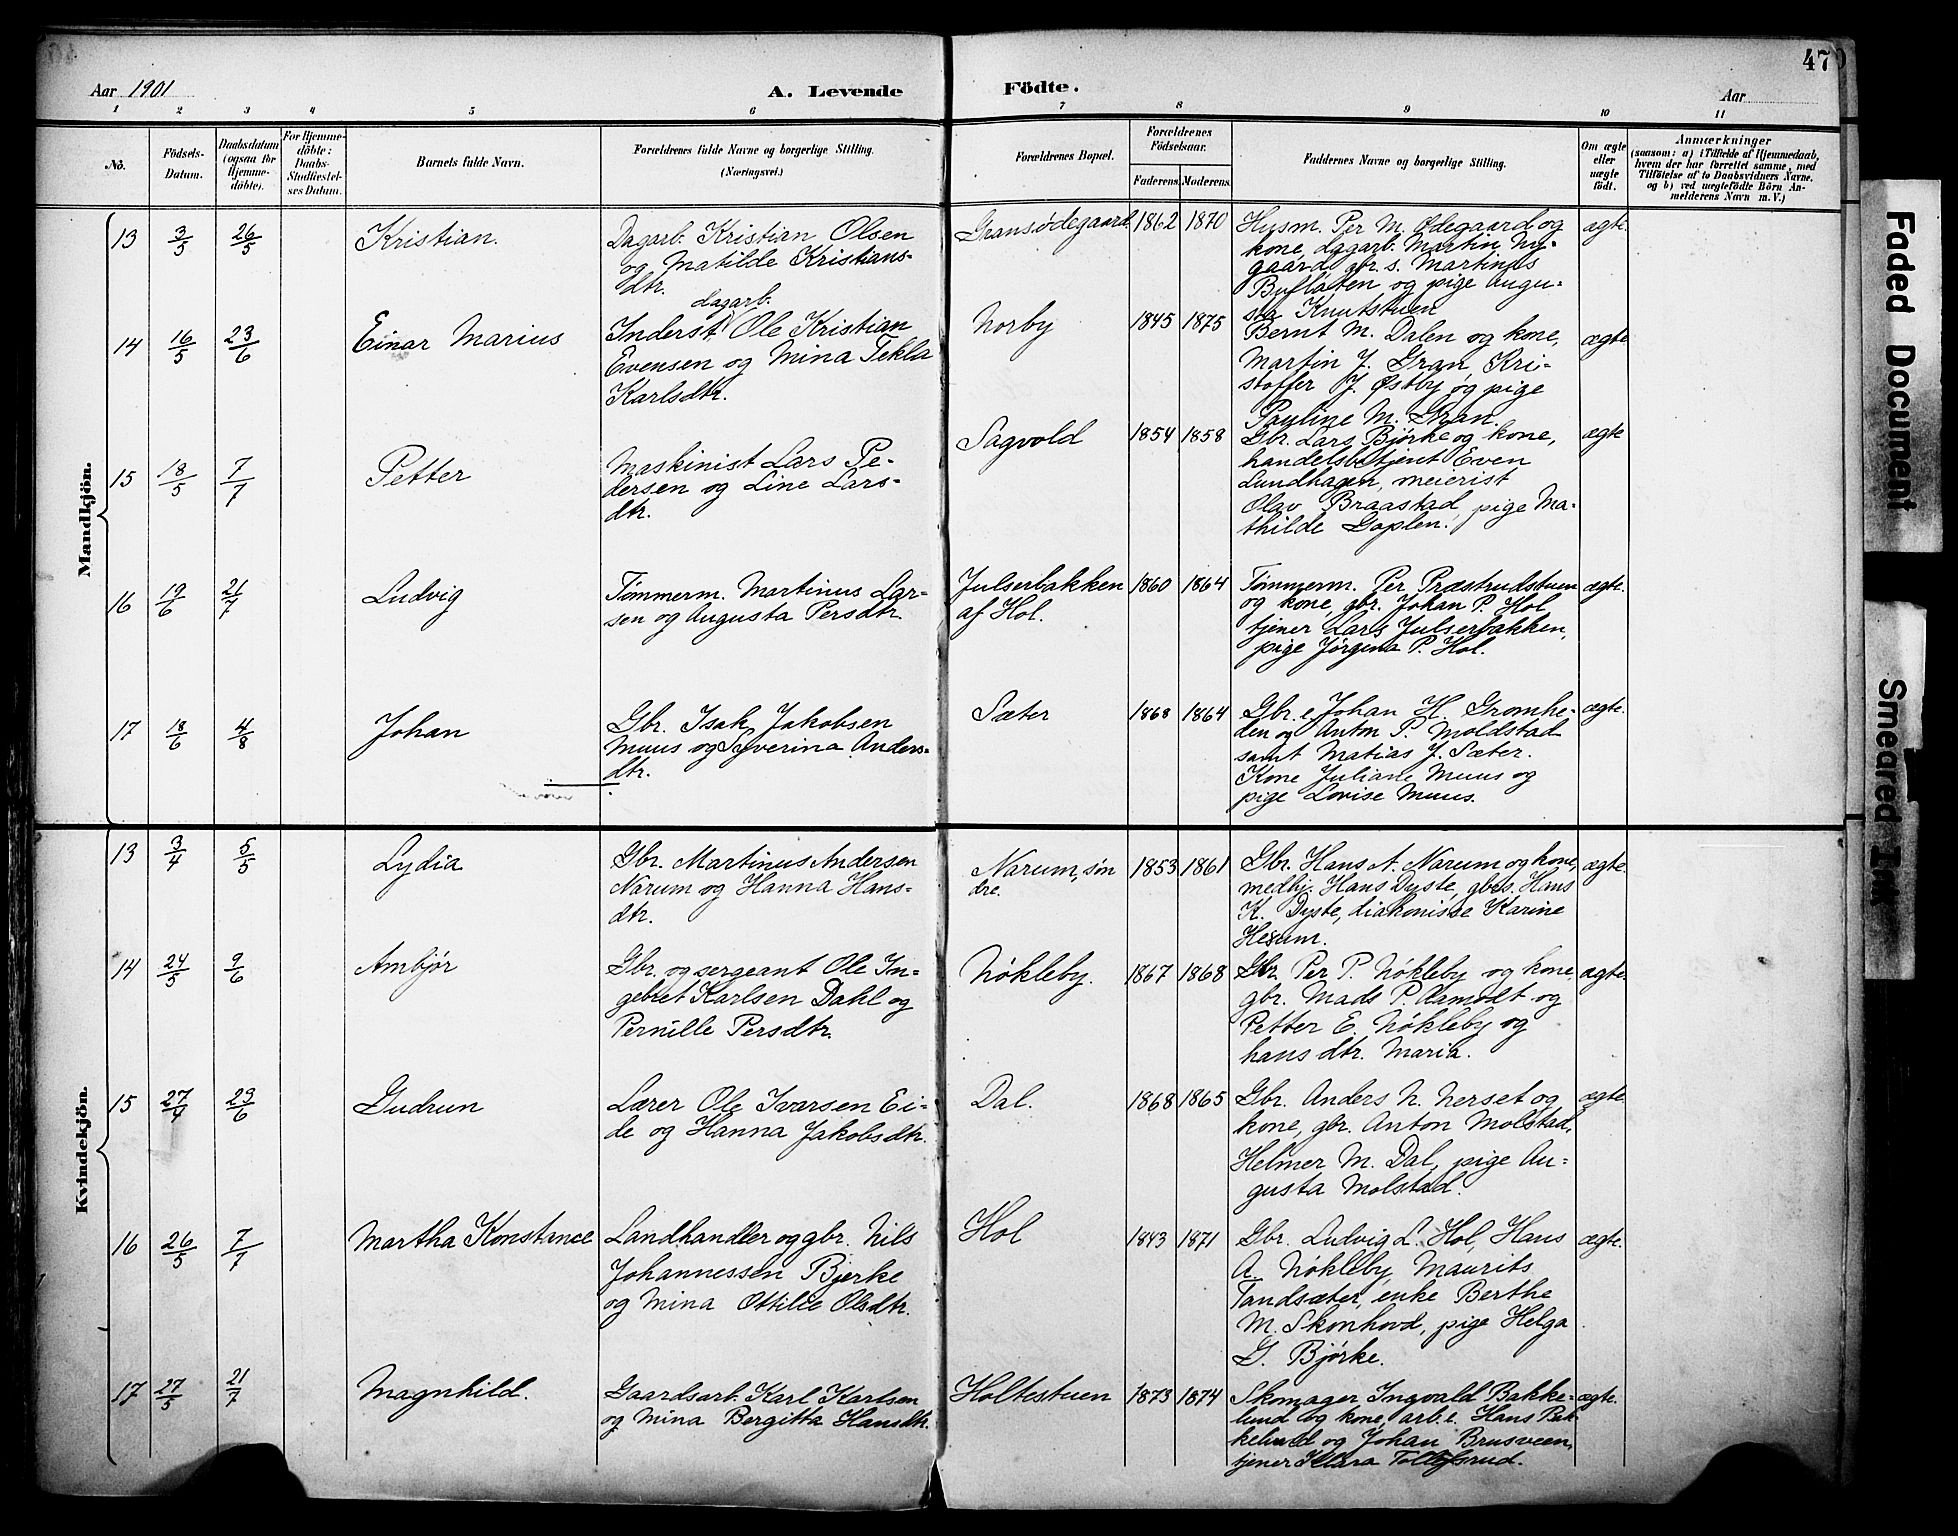 Aar 1901
A. Levende
Födte.
47
Aar
1 2 3 4 5 6 7 8 9 10 11
No.
Födsels-Datum.
Daabsdatum (ogsaa for Hjemme-döbte).
For Hjemme-döbte: Daabs-Stadfæstel-ses Datum.
Barnets fulde Navn.
Forældrenes fulde Navne og borgerlige Stilling. (Næringsvei.)
Forældrenes Bopæl.
Forældrenes Födselsaar.
Faderens. Moderens.
Faddernes Navne og borgerlige Stilling.
Om ægte eller uægte födt.
Anmærkninger
(saasom: a) i Tilfælde af Hjemmedaab,
hvem der har forrettet samme, med
Tilföielse af to Daabsvidners Navne,
og b) ved uægtefödte Börn An-
melderens Navn m. V.)
Mandkjön.
13 3/5 26/5 Kristian.
Dagarb. Kristian Olsen
og Matilde Kristians-
dtr.
Gransødegaard 1862 1870
Husm. Per M. Ødegaard og
kone, dagarb. Martin Ny-
gaard, gbr. s. Martinus
Buflaten og pige Augu-
sta Knutstuen
ægte.
14 16/5 23/6 Einar Marius
dagarb.
Inderst, Ole Kristian
Evensen og Mina Tekla
Karlsdtr.
Norby 1845 1875
Bernt M. Dalen og kone,
Martin J. Gran, Kri-
stoffer J. Østby og pige
Pauline M. Gran.
ægte
15 18/5 7/7 Petter
Maskinist Lars Pe-
dersen og Line Lars-
dtr.
Sagvold 1854 1858
Gbr. Lars Bjørke og kone,
handelsbetjent Even
Lundhagen, meierist
Olav Braastad, pige Ma-
thilde Goplen.
ægte
16 19/6 21/7 Ludvig
Tømmerm. Martinus Lar-
sen og Augusta Persdtr.
Julserbakken
af Hol.
1860 1864
Tømmerm. Per Præstrudstuen
og kone, gbr. Johan P. Hol
tjener Lars Julserbakken,
pige Jørgina P. Hol.
ægte.
17 18/6 4/8 Johan
Gbr. Isak Jakobsen
Muus og Syverina Anders-
dtr.
Sæter 1868 1864
Gbr. e. Johan H. Gromhe-
den og Anton P. Moldstad
samt Matias J. Sæter.
Kone Juliane Muus og
pige Lovise Muus.
ægte.
Kvindekjön.
13 3/4 5/5 Lydia
Gbr. Martinus Andersen
Narum og Hanna Hans-
dtr.
Narum, søn
dre.
1853 1861
Gbr. Hans A. Narum og kone,
medhj. Hans Dyste, gbrs. Hans
K. Dyste, diakonisse Karine
Hesum.
ægte.
14 24/5 9/6 Ambjør
Gbr. og sergeant Ole In-
gebret Karlsen Dahl og
Pernille Persdtr.
Nökleby. 1867 1868
Gbr. Per P. Nökleby og kone,
gbr. Mads P. Aamodt og
Petter E. Nökleby og
hans dtr. Maria.
ægte.
15 27/4 23/6 Gudrun
Lærer Ole Ivarsen Ei-
de og Hanna Jakobsdtr.
Dal. 1868 1865
Gbr. Anders N. Nerset og
kone, gbr. Anton Molstad,
Helmer M. Dal, pige Au-
gusta Molstad.
ægte.
16 26/5 7/7 Martha Konstance
Landhandler og gbr. Nils
Johannessen Bjerke
og Mina Ottilie Olsdtr.
Hol 1843 1871
Gbr. Ludvig L. Hol, Hans
A. Nökleby, Maurits
Tandsæter, enke Berthe
M. Skonhovd, pige Helga
G. Bjørke.
ægte.
17 27/5 21/7 Magnhild.
Gaardsarb. Karl Karlsen
og Mina Bergitta Hansdtr.
Holtestuen 1873 1874
Skomager Ingvald Bakke-
lund og kone, arb. e. Hans Bak-
kelund og Johan Brusveen,
tjener Klara Tollefsrud.
ægte.
Faded Document
Smeared Ink